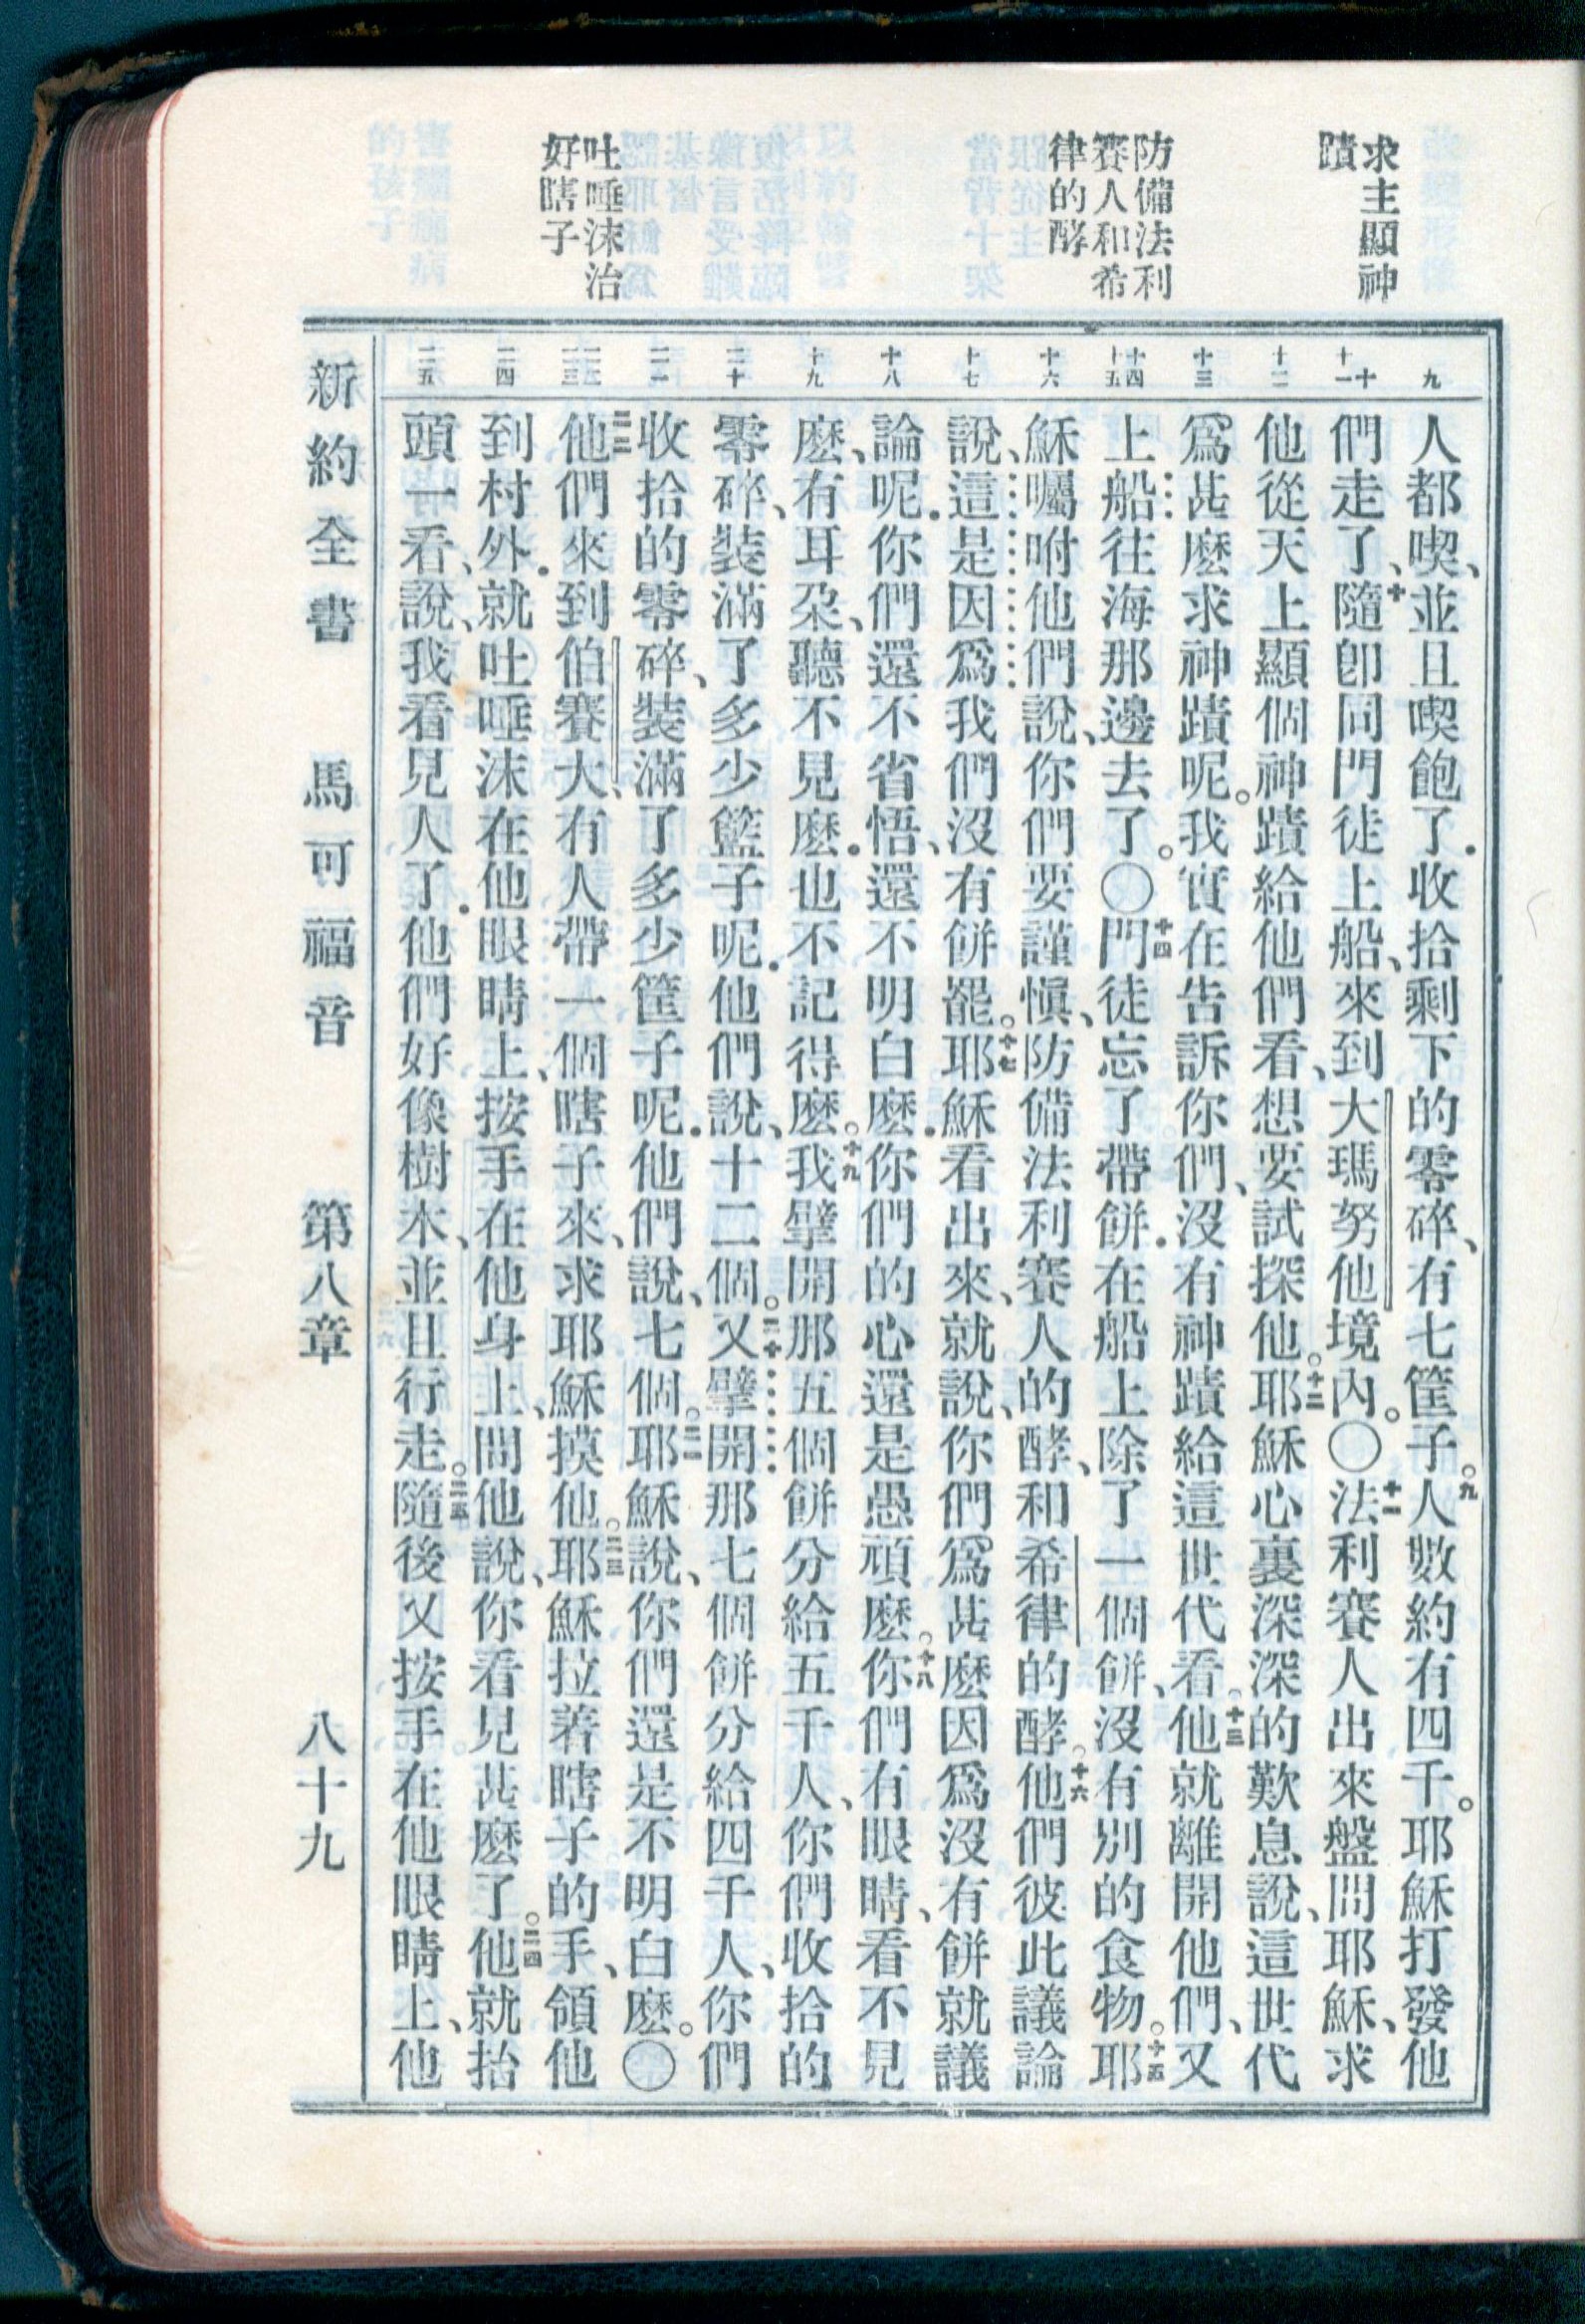 求主顯神
蹟
防備法利
賽人和希
律的酵
吐唾沫治
好瞎子
九
十
十一
十二
十三
十四
十五
十六
十七
十八
十九
二十
二一
二二
二三
二四
二五
人都喫、並且喫飽了．收拾剩下的零碎、有七筐子。九人數約有四千。耶穌打發他
們走了、十隨卽同門徒上船、來到大瑪努他境內。〇十一法利賽人出來盤問耶穌、求
他從天上顯個神蹟給他們看、想要試探他。十二耶穌心裏深深的歎息說、這世代
爲甚麼求神蹟呢。我實在告訴你們、沒有神蹟給這世代看。十三他就離開他們、又
上船往海那邊去了。〇十四門徒忘了帶餅．在船上除了一個餅、沒有別的食物。十五耶
穌囑咐他們說、你們要謹愼、防備法利賽人的酵、和希律的酵。十六他們彼此議論
說、這是因爲我們沒有餅罷。十七耶穌看出來、就說、你們爲甚麼因爲沒有餅就議
論呢．你們還不省悟、還不明白麼．你們的心還是愚頑麼。十八你們有眼睛、看不見
麼、有耳朶、聽不見麼．也不記得麼。十九我擘開那五個餅分給五千人、你們收拾的
零碎、裝滿了多少籃子呢．他們說、十二個。二十又擘開那七個餅分給四千人、你們
收拾的零碎、裝滿了多少筐子呢．他們說、七個。二一耶穌說、你們還是不明白麼。〇
二二他們來到伯賽大、有人帶一個瞎子來、求耶穌摸他。二三耶穌拉著瞎子的手、領他
到村外．就吐唾沫在他眼睛上、按手在他身上、問他說、你看見甚麼了。二四他就抬
頭一看、說、我看見人了．他們好像樹木、並且行走。二五隨後又按手在他眼睛上、他
新約全書　馬可福音　第八章　八十九